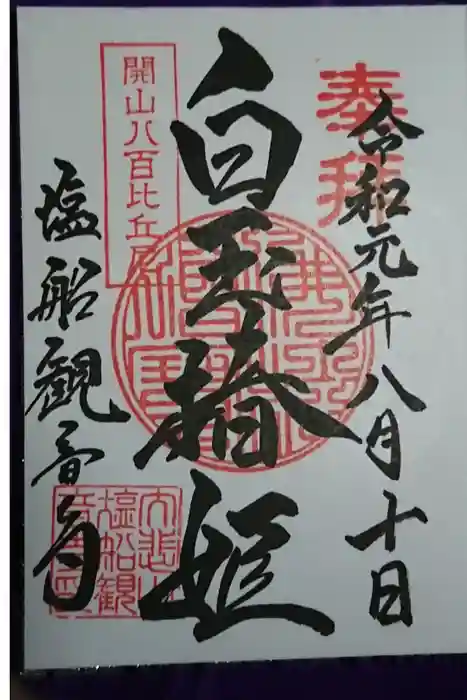 奉拝
令和元年八月十日
白玉椿姫
開山八百比丘尼
塩船観音寺